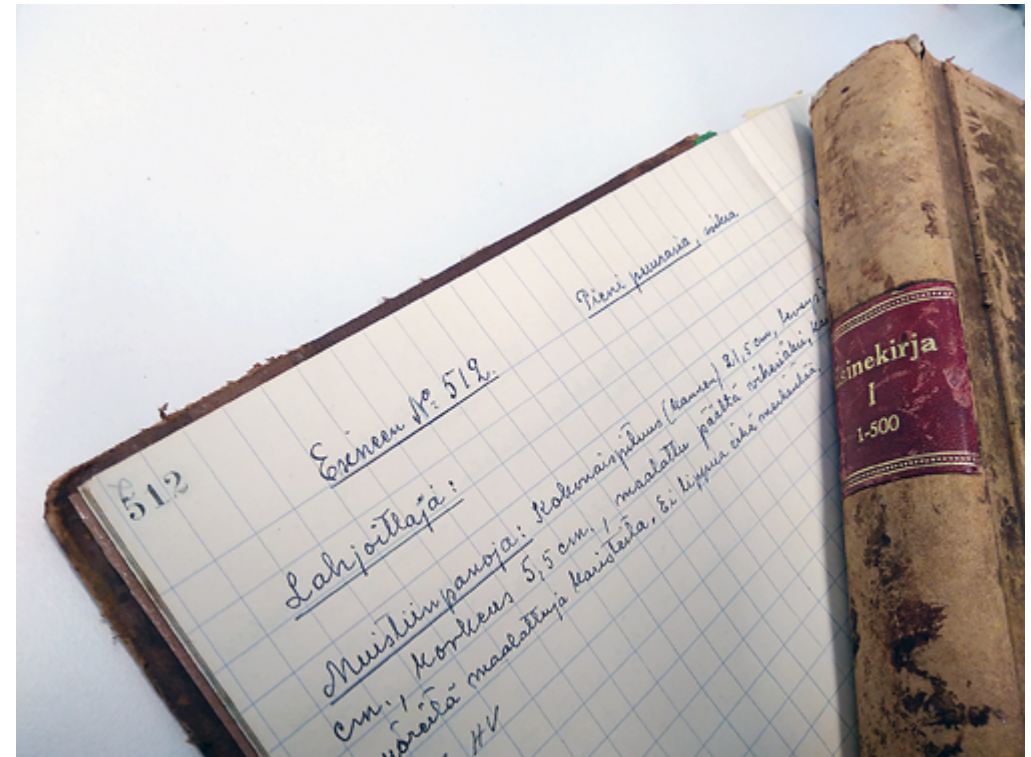 512
Esineen No: 512.
Pieni puurasia, soikea
Lahjoittaja:
Muistiinpanoja: Kokonaispituus (kannen) 21,5 cm, leveys
cm., korkeus 5,5 cm., maalattu päältä vihreäksi,
maalattuja Ei lippua eikä merkintöjä.
HV
sinekirja
I
1-500